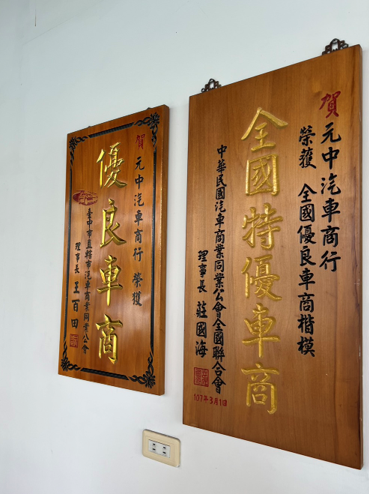 賀
元中汽車商行
榮獲 全國優良車商楷模
全國特優車商
中華民國汽車商業同業公會全國聯合會
理事長 莊國海
賀
元中汽車商行 榮獲
優良車商
臺中市直轄市汽車商業同業公會
理事長 王百田